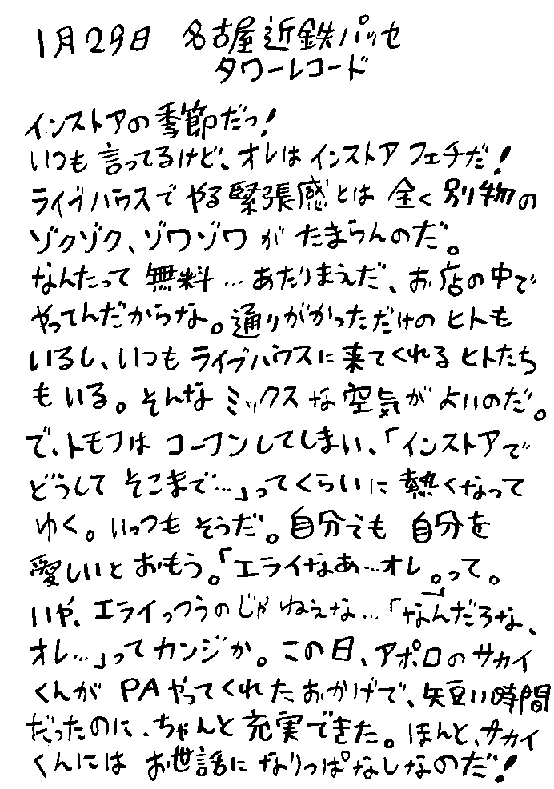 1月29日 名古屋近鉄パッセ
タワーレコード
インストアの季節だっ!
いつも言ってるけど、オレはインストアフェチだ!
ライブハウスでやる緊張感とは全く別物の
ゾクゾク、ゾワゾワがたまらんのだ。
なんたって無料…あたりまえだ、お店の中で
やってんだからな。通りがかっただけのヒトも
いるし、いつもライブハウスに来てくれるヒトたち
もいる。そんなミックスな空気がよいのだ。
で、トモフはコーフンしてしまい、「インストアで
どうしてそこまで…」ってくらいに熱くなって
ゆく。いっつもそうだ。自分でも自分を
愛しいとおもう。「エライなあ…オレ。」って。
いや、エライっつうのじゃねえな…「なんだろな、
オレ…」ってカンジか。この日、アポロのサカイ
くんがPAやってくれたおかげで、短い時間
だったのに、ちゃんと充実できた。ほんと、サカイ
くんにはお世話になりっぱなしなのだ!